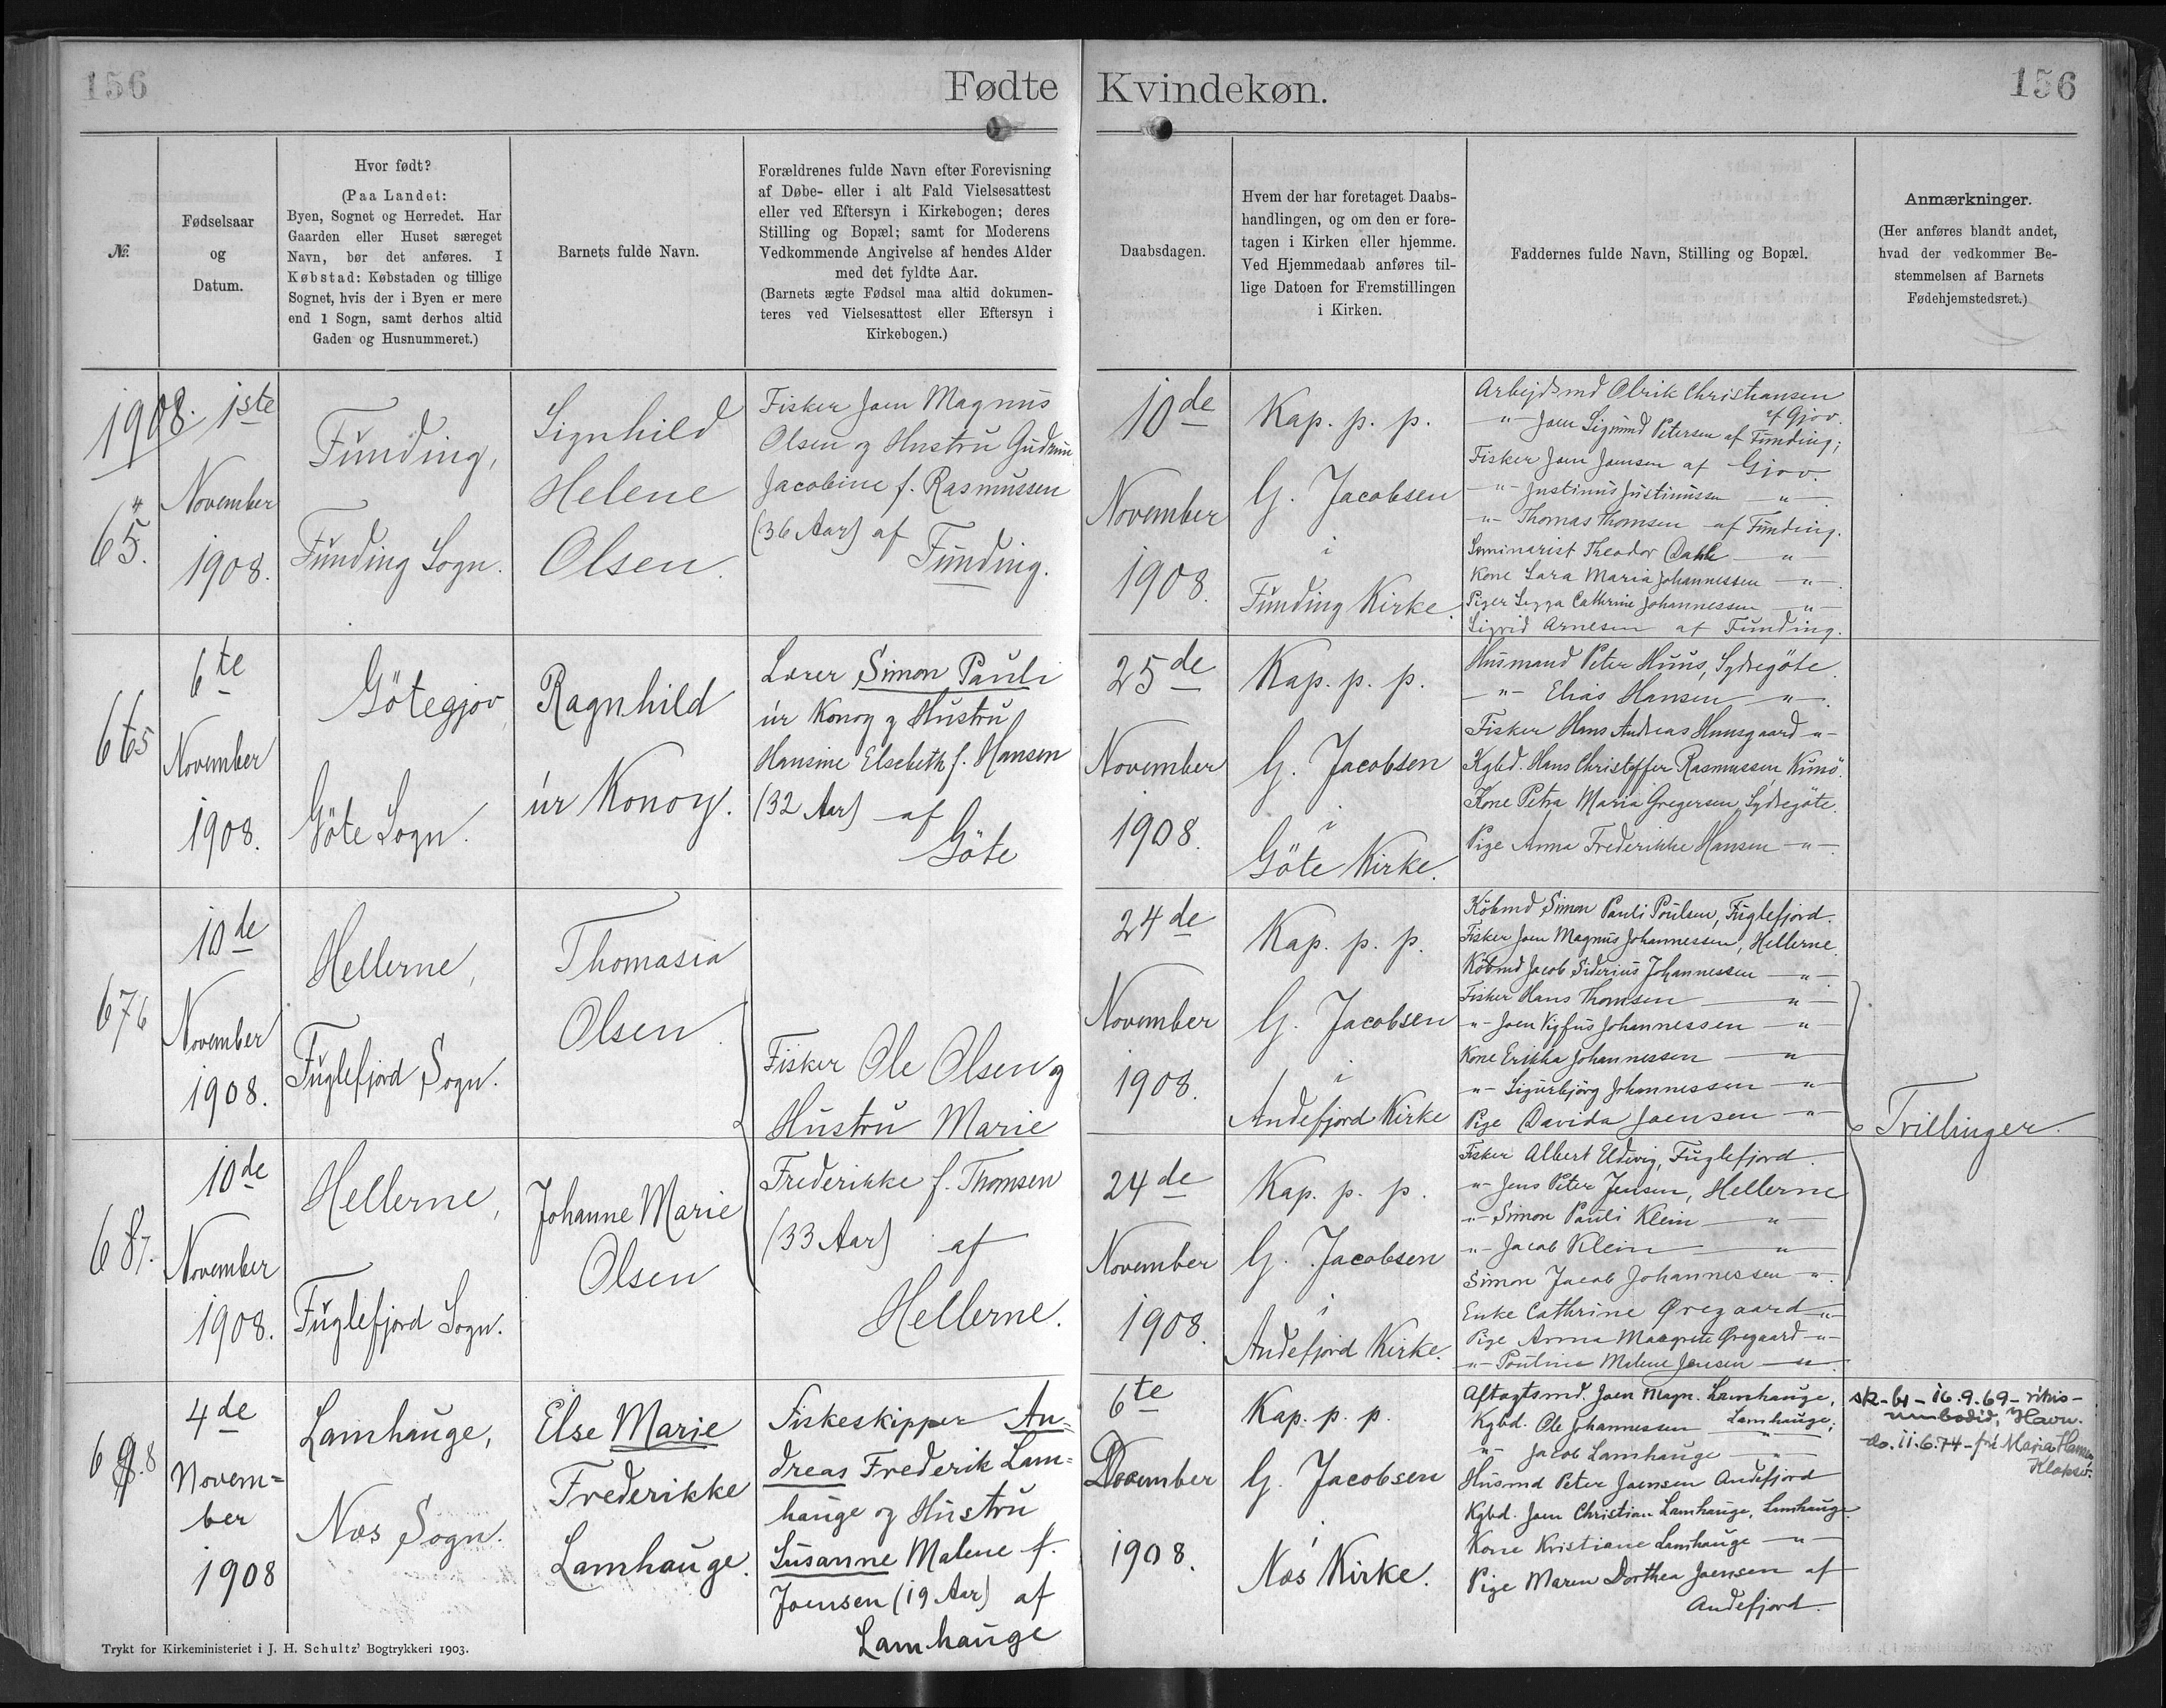 156
Fødte
Kvindekøn.
156
№.
Fødselsaar
og
Datum.
Hvor født?
(Paa Landet:
Byen, Sognet og Herredet. Har
Gaarden eller Huset særeget
Navn, bør det anføres. I
Købstad: Købstaden og tillige
Sognet, hvis der i Byen er mere
end 1 Sogn, samt derhos altid
Gaden og Husnummeret.)
Barnets fulde Navn.
Forældrenes fulde Navn efter Forevisning
af Døbe- eller i alt Fald Vielsesattest
eller ved Eftersyn i Kirkebogen; deres
Stilling og Bopæl; samt for Moderens
Vedkommende Angivelse af hendes Alder
med det fyldte Aar.
(Barnets ægte Fødsel maa altid dokumen-
teres ved Vielsesattest eller Eftersyn i
Kirkebogen.)
Daabsdagen.
Hvem der har foretaget Daabs-
handlingen, og om den er fore-
tagen i Kirken eller hjemme.
Ved Hjemmedaab anføres til-
lige Datoen for Fremstillingen
i Kirken.
Faddernes fulde Navn, Stilling og Bopæl.
Anmærkninger.
(Her anføres blandt andet,
hvad der vedkommer Be-
stemmelsen af Barnets
Fødehjemstedsret.)
1908.
65.
4
1ste
November
1908.
Funding,
Funding Sogn.
Signhild
Helene
Olsen.
Fisker Joen Magnus
Olsen og Hustru Gudrun
Jacobine f. Rasmussen
(36 Aar) af
Funding.
10de
November
1908.
Kap. p. p.
G. Jacobsen
i
Funding Kirke.
Arbejdsmd Olrik Christiansen
af Gjov.
-"- Joen Sigmund Petersen af Funding;
Fisker Joen Joensen af Gjov.
-"- Justinus Justinussen -"-
-"- Thomas Thomsen af Funding.
Seminarist Theodor Dahl -"-
Kone Sara Maria Johannessen -"-
Piger Cathrine Johannessen -"-
Sigrid Arnesen af Funding.
665
6te
November
1908.
Götegjov
Göte Sogn.
Ragnhild
úr Konoy.
Lærer Simon Pauli
úr Konoy og Hustru
Hansine Elsebeth f. Hansen
(32 Aar) af
Göte
25de
November
1908.
Kap. p. p.
G. Jacobsen
i
Göte Kirke.
Husmand Peter Huus, Sydregöte.
-"- Elias Hansen -"-
Fisker Hans Andreas Huusgaard -"-
Kgbd. Hans Christoffer Rasmussen, Kunö.
Kone Petra Maria Gregersen, Sydregöte.
Pige Anna Frederikke Hansen -"-
676
10de
November
1908.
Hellerne,
Fuglefjord Sogn.
Thomasia
Olsen.
Fisker Ole Olsen og
Hustru Marie
Frederikke f. Thomsen
(33 Aar) af
Hellerne.
24de
November
1908.
Kap. p. p.
G. Jacobsen
i
Andefjord Kirke
Köbmd Simon Pauli Poulsen, Fuglefjord.
Fisker Joen Magnus Johannessen, Hellerne.
Köbmd Jacob Siderius Johannessen -"-
Fisker Hans Thomsen -"-
-"- Joen Vigfus Johannessen -"-
Kone Erikka Johannessen -"-
-"- Sigurbjörg Johannessen -"-
Pige Davida Joensen -"-
Tvillinger.
687.
10de
November
1908.
Hellerne,
Fuglefjord Sogn.
Johanne Marie
Olsen
24de
November
1908.
Kap. p. p.
G. Jacobsen
i
Andefjord Kirke.
Fisker Albert Eldevig, Fuglefjord.
-"- Jens Peter Jensen, Hellerne
-"- Simon Pauli Klein -"-
-"- Jacob Klein -"-
Simon Jacob Johannessen -"-
Enke Cathrine Øregaard -"-
Pige Anna Margrete Øregaard -"-
-"- Poulina Malene Jensen -"-
698
4de
Novem=
ber
1908
Lamhauge,
Næs Sogn.
Else Marie
Frederikke
Lamhauge.
Fiskeskipper An=
dreas Frederik Lam=
hauge og Hustru
Susanne Malene f.
Joensen (19 Aar) af
Lamhauge
6te
December
1908.
Kap. p. p.
G. Jacobsen
i
Næs Kirke.
Aftægtsmd. Joen Magn. Lamhauge,
Kgbd. Ole Johannessen Lamhauge;
-"- Jacob Lamhauge -"-
Husmd Peter Joensen Andefjord
Kgbd. Joen Christian Lamhauge, Lamhauge.
Kone Kristiane Lamhauge -"-
Pige Maren Dorthea Joensen af
Andefjord.
sk-bl-16.9.69- ríkis-
umboðið, Havn.
do. 11.6.74-frú Maria Hansen
Klaksv.
Trykt for Kirkeministeriet i J. H. Schultz' Bogtrykkeri 1903.